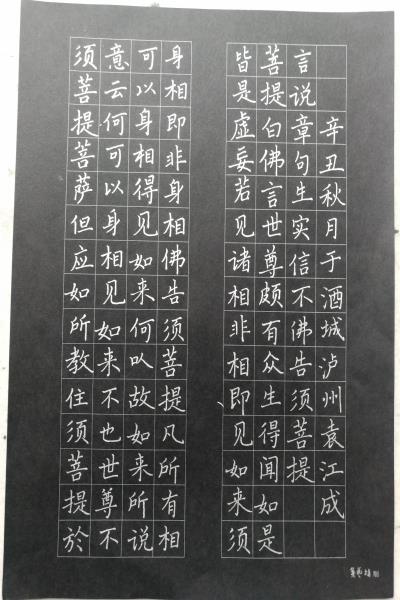 须菩提菩萨但应如所教住须菩提於
意云何可以身相见如来不也世尊不
可以身相得见如来何以故如来所说
身相即非身相佛告须菩提凡所有相
皆是虚妄若见诸相非相即见如来须
菩提白佛言世尊颇有众生得闻如是
言说章句生实信不佛告须菩提
辛丑秋月于酒城泸州袁江成